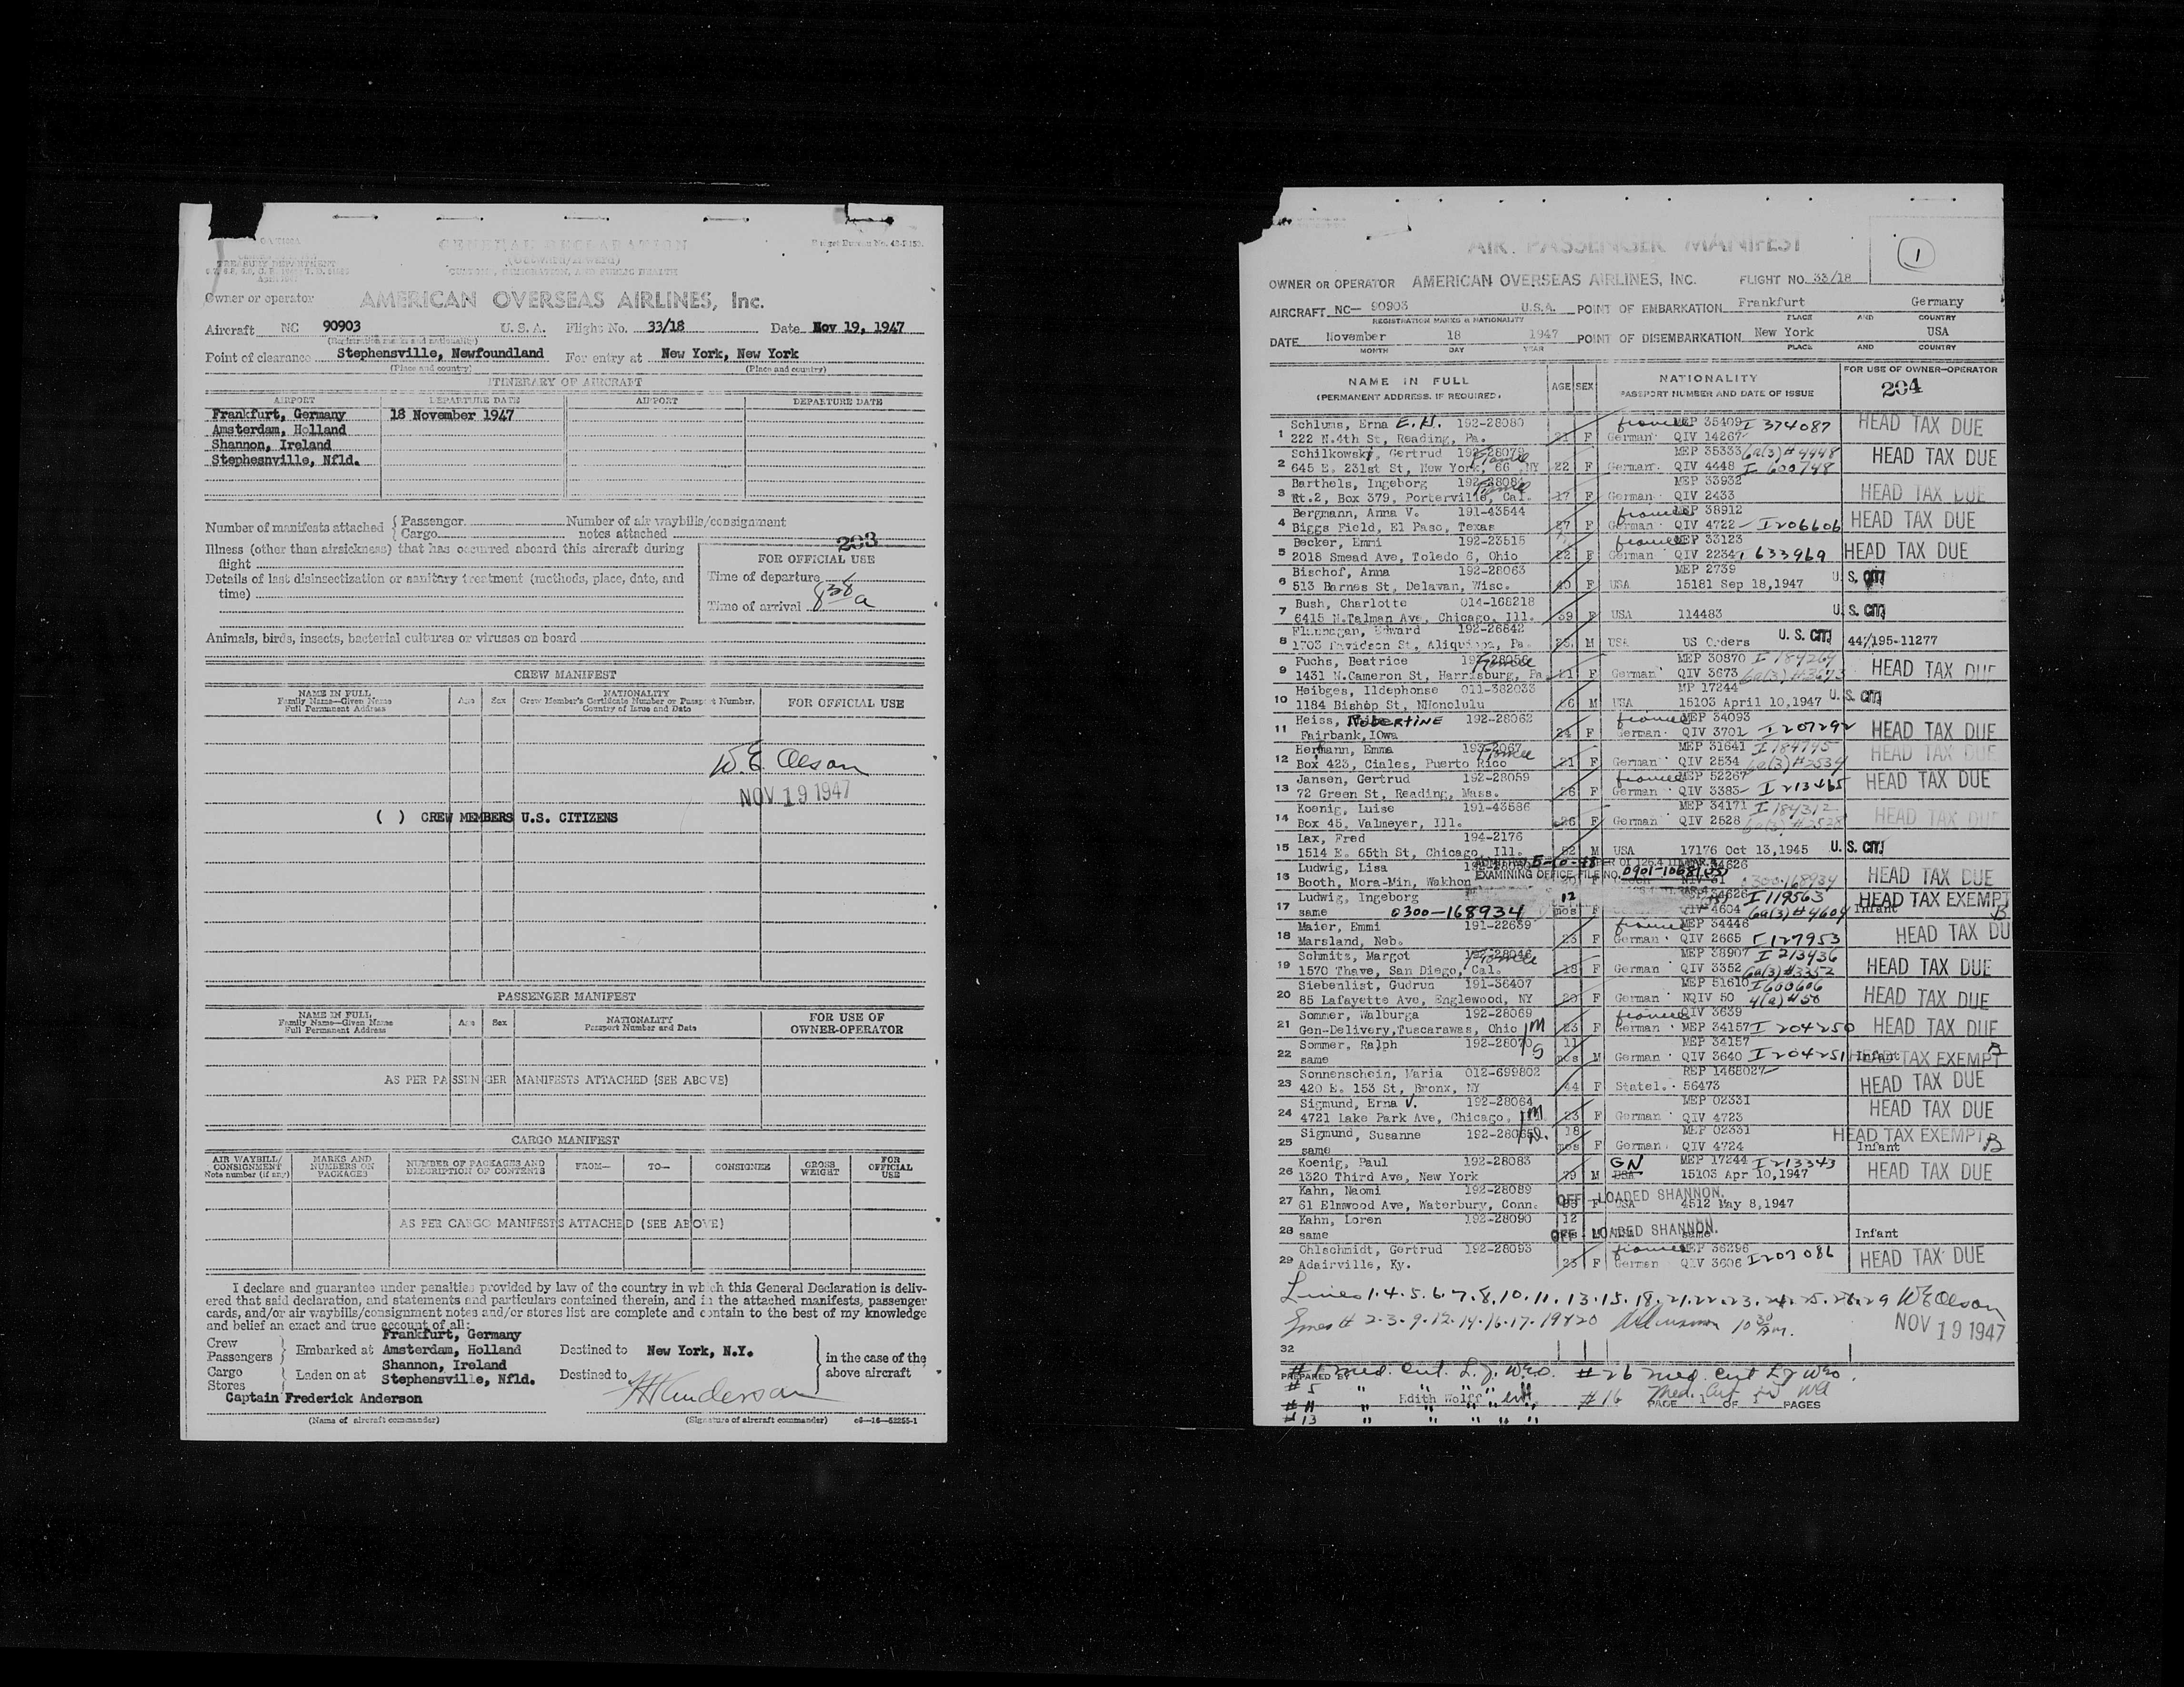 GENERAL DECLARATION
(Outward/Inward)
CUSTOMS, IMMIGRATION, AND PUBLIC HEALTH
TREASURY DEPARTMENT
Owner or operator AMERICAN OVERSEAS AIRLINES, Inc.
Aircraft NC 90903 U.S.A. Flight No. 33/18 Date Nov 19, 1947
(Registration marks and nationality)
Point of clearance Stephensville, Newfoundland For entry at New York, New York
(Place and country) (Place and country)
ITINERARY OF AIRCRAFT
AIRPORT DEPARTURE DATE AIRPORT DEPARTURE DATE
Frankfurt, Germany 18 November 1947
Amsterdam, Holland
Shannon, Ireland
Stephesnville, Nfld.
Number of manifests attached { Passenger Number of air waybills/consignment
Cargo notes attached
203
Illness (other than airsickness) that has occurred aboard this aircraft during
flight
FOR OFFICIAL USE
Details of last disinsectization or sanitary treatment (methods, place, date, and
time)
Time of departure
Time of arrival 8 38 a
Animals, birds, insects, bacterial cultures or viruses on board
CREW MANIFEST
NAME IN FULL
Family Name—Given Name
Full Permanent Address
Age Sex
NATIONALITY
Crew Member's Certificate Number or Passport Number.
Country of Issue and Date
FOR OFFICIAL USE
W.E. Olson
NOV 19 1947
( ) CREW MEMBERS U.S. CITIZENS
PASSENGER MANIFEST
NAME IN FULL
Family Name—Given Name
Full Permanent Address
Age Sex
NATIONALITY
Passport Number and Date
FOR USE OF
OWNER-OPERATOR
AS PER PASSENGER MANIFESTS ATTACHED (SEE ABOVE)
CARGO MANIFEST
AIR WAYBILL/
CONSIGNMENT
Note number (if any)
MARKS AND
NUMBERS ON
PACKAGES
NUMBER OF PACKAGES AND
DESCRIPTION OF CONTENTS
FROM— TO— CONSIGNEE
GROSS
WEIGHT
FOR
OFFICIAL
USE
AS PER CARGO MANIFESTS ATTACHED (SEE ABOVE)
I declare and guarantee under penalties provided by law of the country in which this General Declaration is deliv-
ered that said declaration, and statements and particulars contained therein, and in the attached manifests, passenger
cards, and/or air waybills/consignment notes and/or stores list are complete and contain to the best of my knowledge
and belief an exact and true account of all:
Frankfurt, Germany
Crew
Passengers } Embarked at Amsterdam, Holland Destined to New York, N.Y. } in the case of the
Shannon, Ireland
Cargo
Stores } Laden on at Stephensville, Nfld. Destined to above aircraft
Captain Frederick Anderson
(Name of aircraft commander) (Signature of aircraft commander) c6—16—52255-1
AIR PASSENGER MANIFEST
1
OWNER OR OPERATOR AMERICAN OVERSEAS AIRLINES, INC. FLIGHT NO. 33/18
AIRCRAFT NC— 90903 U.S.A. POINT OF EMBARKATION Frankfurt Germany
REGISTRATION MARKS & NATIONALITY PLACE AND COUNTRY
DATE November 18 1947 POINT OF DISEMBARKATION New York USA
MONTH DAY YEAR PLACE AND COUNTRY
NAME IN FULL
(PERMANENT ADDRESS, IF REQUIRED)
AGE SEX
NATIONALITY
PASSPORT NUMBER AND DATE OF ISSUE
FOR USE OF OWNER—OPERATOR
204
Schlums, Erna E.H. 192-28080 MEP 35409 I 374087 HEAD TAX DUE
1 222 N.4th St, Reading, Pa. 21 F German QIV 14267
Schilkowski, Gertrud 192-28079 MEP 35333 6a(3)#4448 HEAD TAX DUE
2 645 E. 231st St, New York, 66 NY 22 F German QIV 4448 I 600748
Barthels, Ingeborg 192-28084 MEP 33932 HEAD TAX DUE
3 Rt.2, Box 379, Porterville, Cal. 17 F German QIV 2433
Bergmann, Anna V. 191-43544 MEP 38912 HEAD TAX DUE
4 Biggs Field, El Paso, Texas 27 F German QIV 4722 - I206606
Becker, Emmi 192-23515 MEP 33123 HEAD TAX DUE
5 2018 Smead Ave, Toledo 6, Ohio 22 F German QIV 2234 633969
Bischof, Anna 192-28063 MEP 2739 U.S. CIT
6 513 Barnes St, Delavan, Wisc. 40 F USA 15181 Sep 18,1947
Bush, Charlotte 014-168218 U.S. CIT
7 6415 N.Talman Ave, Chicago, Ill. 59 F USA 114483
Flannagan, Edward 192-26842 U.S. CIT
8 1703 Davidson St, Aliquippa, Pa. M USA US Orders 44/195-11277
Fuchs, Beatrice MEP 30870 I 184264 HEAD TAX DUE
9 1431 N.Cameron St, Harrisburg, Pa 21 F German QIV 3673 6a(3)#3673
Heibges, Ildephonse 011-382033 MP 17244 U.S. CIT
10 1184 Bishop St, NHonolulu 26 M USA 15103 April 10,1947
Heiss, ROBERTINE 192-28062 MEP 34093 HEAD TAX DUE
11 Fairbank, IOwa 24 F German QIV 3701 I207292
Hermann, Emma 193-2067 MEP 31641 I 184745 HEAD TAX DUE
12 Box 423, Ciales, Puerto Rico 21 F German QIV 2534 6a(3)#2534
Jansen, Gertrud 192-28059 MEP 52267 HEAD TAX DUE
13 72 Green St, Reading, Mass. 26 F German QIV 3385 I 213465
Koenig, Luise 191-43586 MEP 34171 I 184312 HEAD TAX DUE
14 Box 45, Valmeyer, Ill. 26 F German QIV 2528 6a(3)#2528
Lax, Fred 194-2176 U.S. CIT
15 1514 E. 65th St, Chicago, Ill. 52 M USA 17176 Oct 13,1945
Ludwig, Lisa 5-10-48
EXAMINING OFFICE FILE NO. 0901-10681
16 Booth, Mora-Min, Wakhon HEAD TAX DUE
Ludwig, Ingeborg 12 I 119563 HEAD TAX EXEMPT
17 same 0300-168934 mos F QIV 4604 6a(3)#4604 Infant B
Maier, Emmi 191-22639 MEP 34446 HEAD TAX DU
18 Marsland, Neb. 23 F German QIV 2665 I 127953
Schmitz, Margot 192-28046 MEP 38907 I 213436 HEAD TAX DUE
19 1570 Thave, San Diego, Cal. 18 F German QIV 3352 6a(3)#3352
Siebenlist, Gudrun 191-36407 MEP 51610 I600606 HEAD TAX DUE
20 85 Lafayette Ave, Englewood, NY 20 F German NQIV 50 4(a)#50
Sommer, Walburga 192-28069 QIV 3639 HEAD TAX DUE
21 Gen-Delivery,Tuscarawas, Ohio 1M 23 F German MEP 34157 I 204250
Sommer, Ralph 192-28070 1S 11 MEP 34157 HEAD TAX EXEMPT B
22 same mos M German QIV 3640 I 204251 Infant
Sonnenschein, Maria 012-699802 REP 1468027 HEAD TAX DUE
23 420 E. 153 St, Bronx, NY 44 F Statel. 56473
Sigmund, Erna V. 192-28064 MEP 02331 HEAD TAX DUE
24 4721 Lake Park Ave, Chicago, 1M 23 F German QIV 4723
Sigmund, Susanne 192-28065 18 MEP 02331 HEAD TAX EXEMPT
25 same mos F German QIV 4724 Infant B
Koenig, Paul 192-28083 GN MEP 17244 I 213343 HEAD TAX DUE
26 1320 Third Ave, New York 79 M USA 15103 Apr 10,1947
Kahn, Naomi 192-28089 OFF LOADED SHANNON.
27 61 Elmwood Ave, Waterbury, Conn. F USA 4512 May 8,1947
Kahn, Loren 192-28090 12 OFF LOADED SHANNON.
28 same same Infant
Ohlschmidt, Gertrud 192-28093 MEP 36296 HEAD TAX DUE
29 Adairville, Ky. 23 F German QIV 3606 I207086
Lines 1.4.5.6.7.8.10.11.13.15.18.21.22.23.24.25.26.29 WE Olson
Lines # 2-3-9-12-14-16-17-19+20 10 30 am.
NOV 19 1947
32
#1 med. Cert. L.J. WEO. #26 med. Cert LJ WEO.
PREPARED BY
#5 " " "
Edith Wolff #16 Med. Cert
#11 " " " PAGE 1 OF 1 PAGES
#13 " " " "